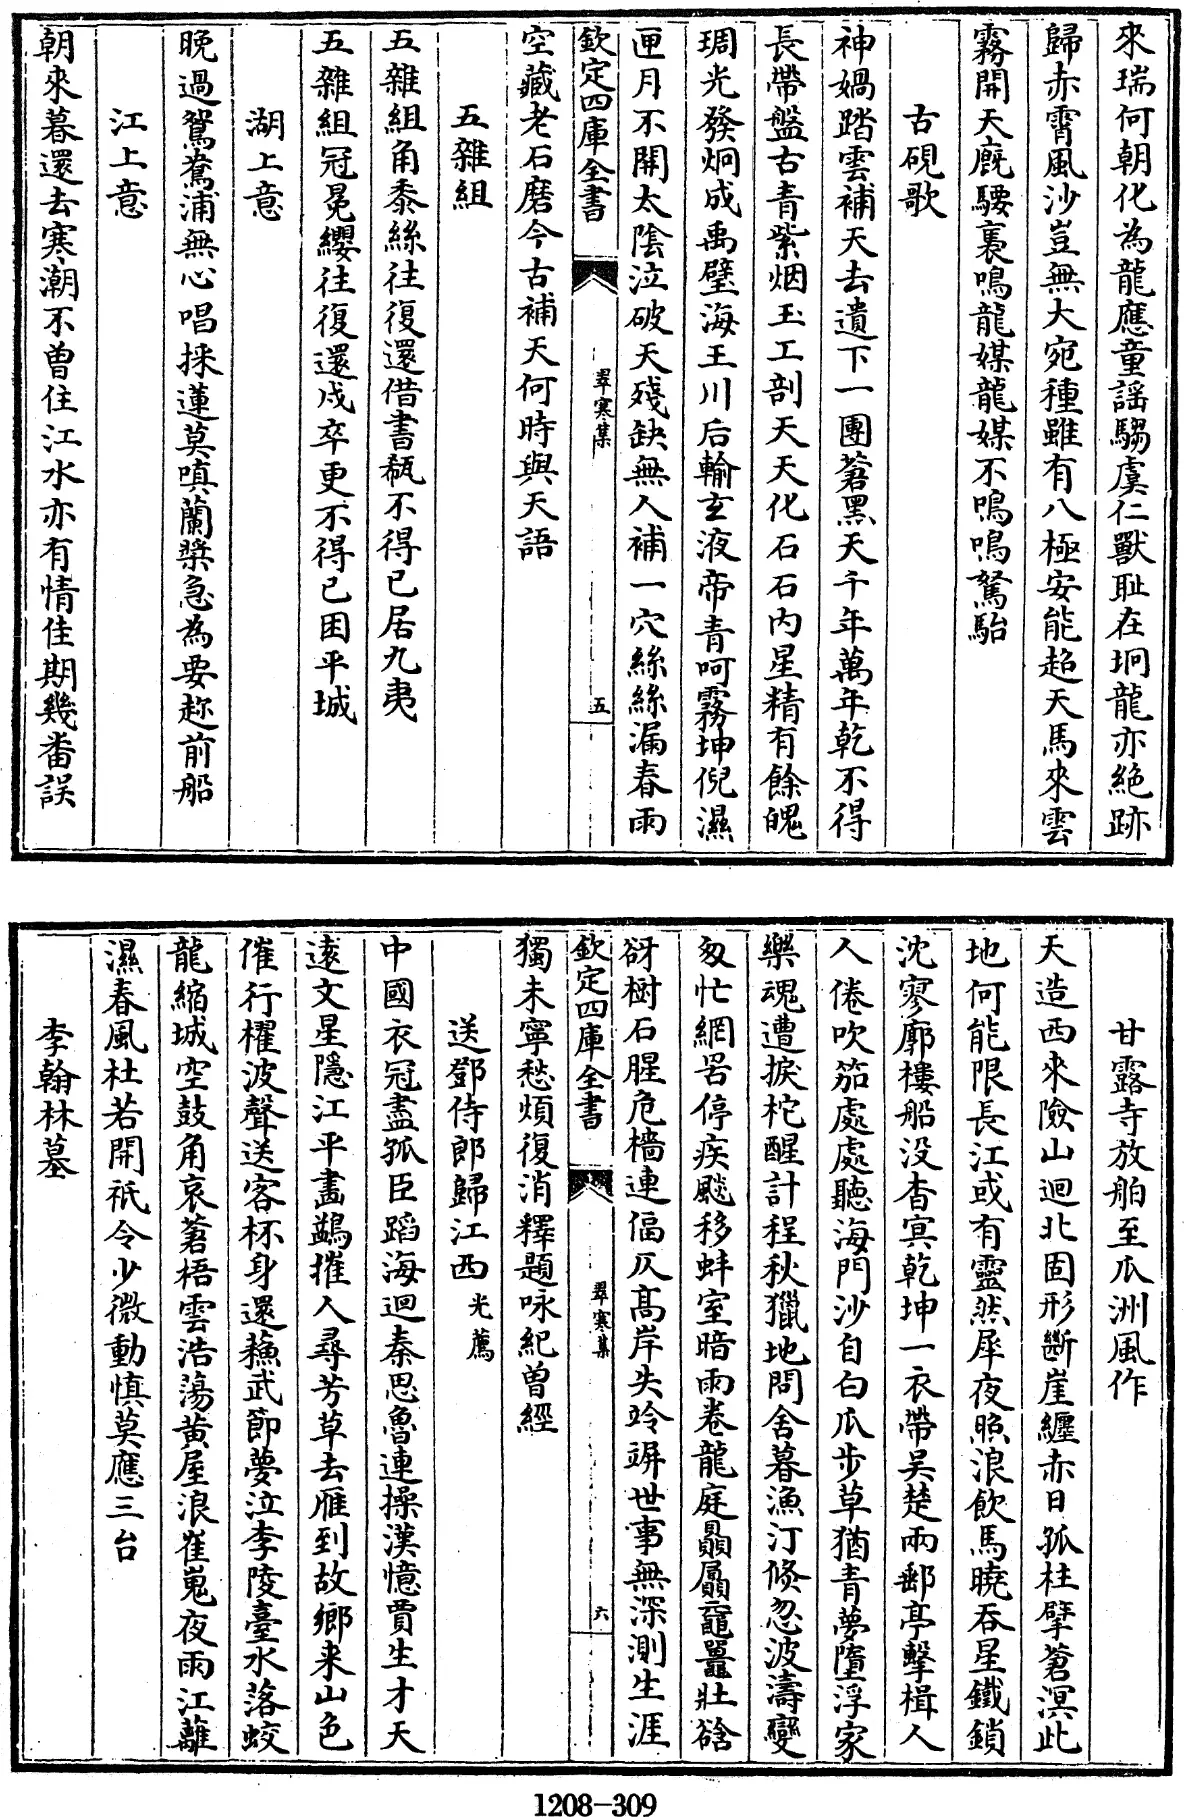 來瑞何朝化為龍應童謡騶虞仁獸耻在坰龍亦絶跡
歸赤霄風沙豈無大宛種雖有八極安能超天馬來雲
霧開天廐騕褭鳴龍媒龍媒不鳴鳴駑駘
古硯歌
神媧踏雲補天去遺下一團蒼黑天千年萬年乾不得
長帶盤古青紫烟玉工剖天天化石石内星精有餘魄
琱光發炯成禹璧海王川后輸玄液帝青呵霧坤倪濕
匣月不開太陰泣破天殘缺無人補一穴絲絲漏春雨
欽定四庫全書
翠寒集
五
空藏老石磨今古補天何時與天語
五雜組
五雜組角黍絲往復還借書瓻不得已居九夷
五雜組冠冕纓往復還戍卒更不得已困平城
湖上意
晚過鴛鴦浦無心唱採蓮莫嗔蘭槳急為要趂前船
江上意
朝來暮還去寒潮不曾住江水亦有情佳期幾畨誤
甘露寺放舶至瓜洲風作
天造西來險山迴北固形斷崖纏赤日孤柱擘蒼溟此
地何能限長江或有靈然犀夜照浪飲馬曉吞星鐵鎖
沈寥廓樓船没杳冥乾坤一衣帶吳楚兩郵亭擊楫人
人倦吹笳處處聽海門沙自白瓜步草猶青夢墮浮家
樂魂遭捩柁醒計程秋獵地問舍暮漁汀倐忽波濤變
匆忙網罟停疾飈移蚌室暗雨卷龍庭贔屭黿鼉壯谽
谺樹石腥危檣連偪仄髙岸失竛竮世事無深測生涯
欽定四庫全書
翠寒集
六
獨未寧愁煩復消釋題咏紀曾經
送鄧侍郎歸江西光薦
中國衣冠盡孤臣蹈海迴秦思魯連操漢憶賈生才天
遠文星隱江平畵鷁摧人尋芳草去雁到故鄉来山色
催行櫂波聲送客杯身還蘓武節夢泣李陵臺水落蛟
龍縮城空鼓角哀蒼梧雲浩蕩黄屋浪崔嵬夜雨江蘺
濕春風杜若開祇令少微動慎莫應三台
李翰林墓
1208-309